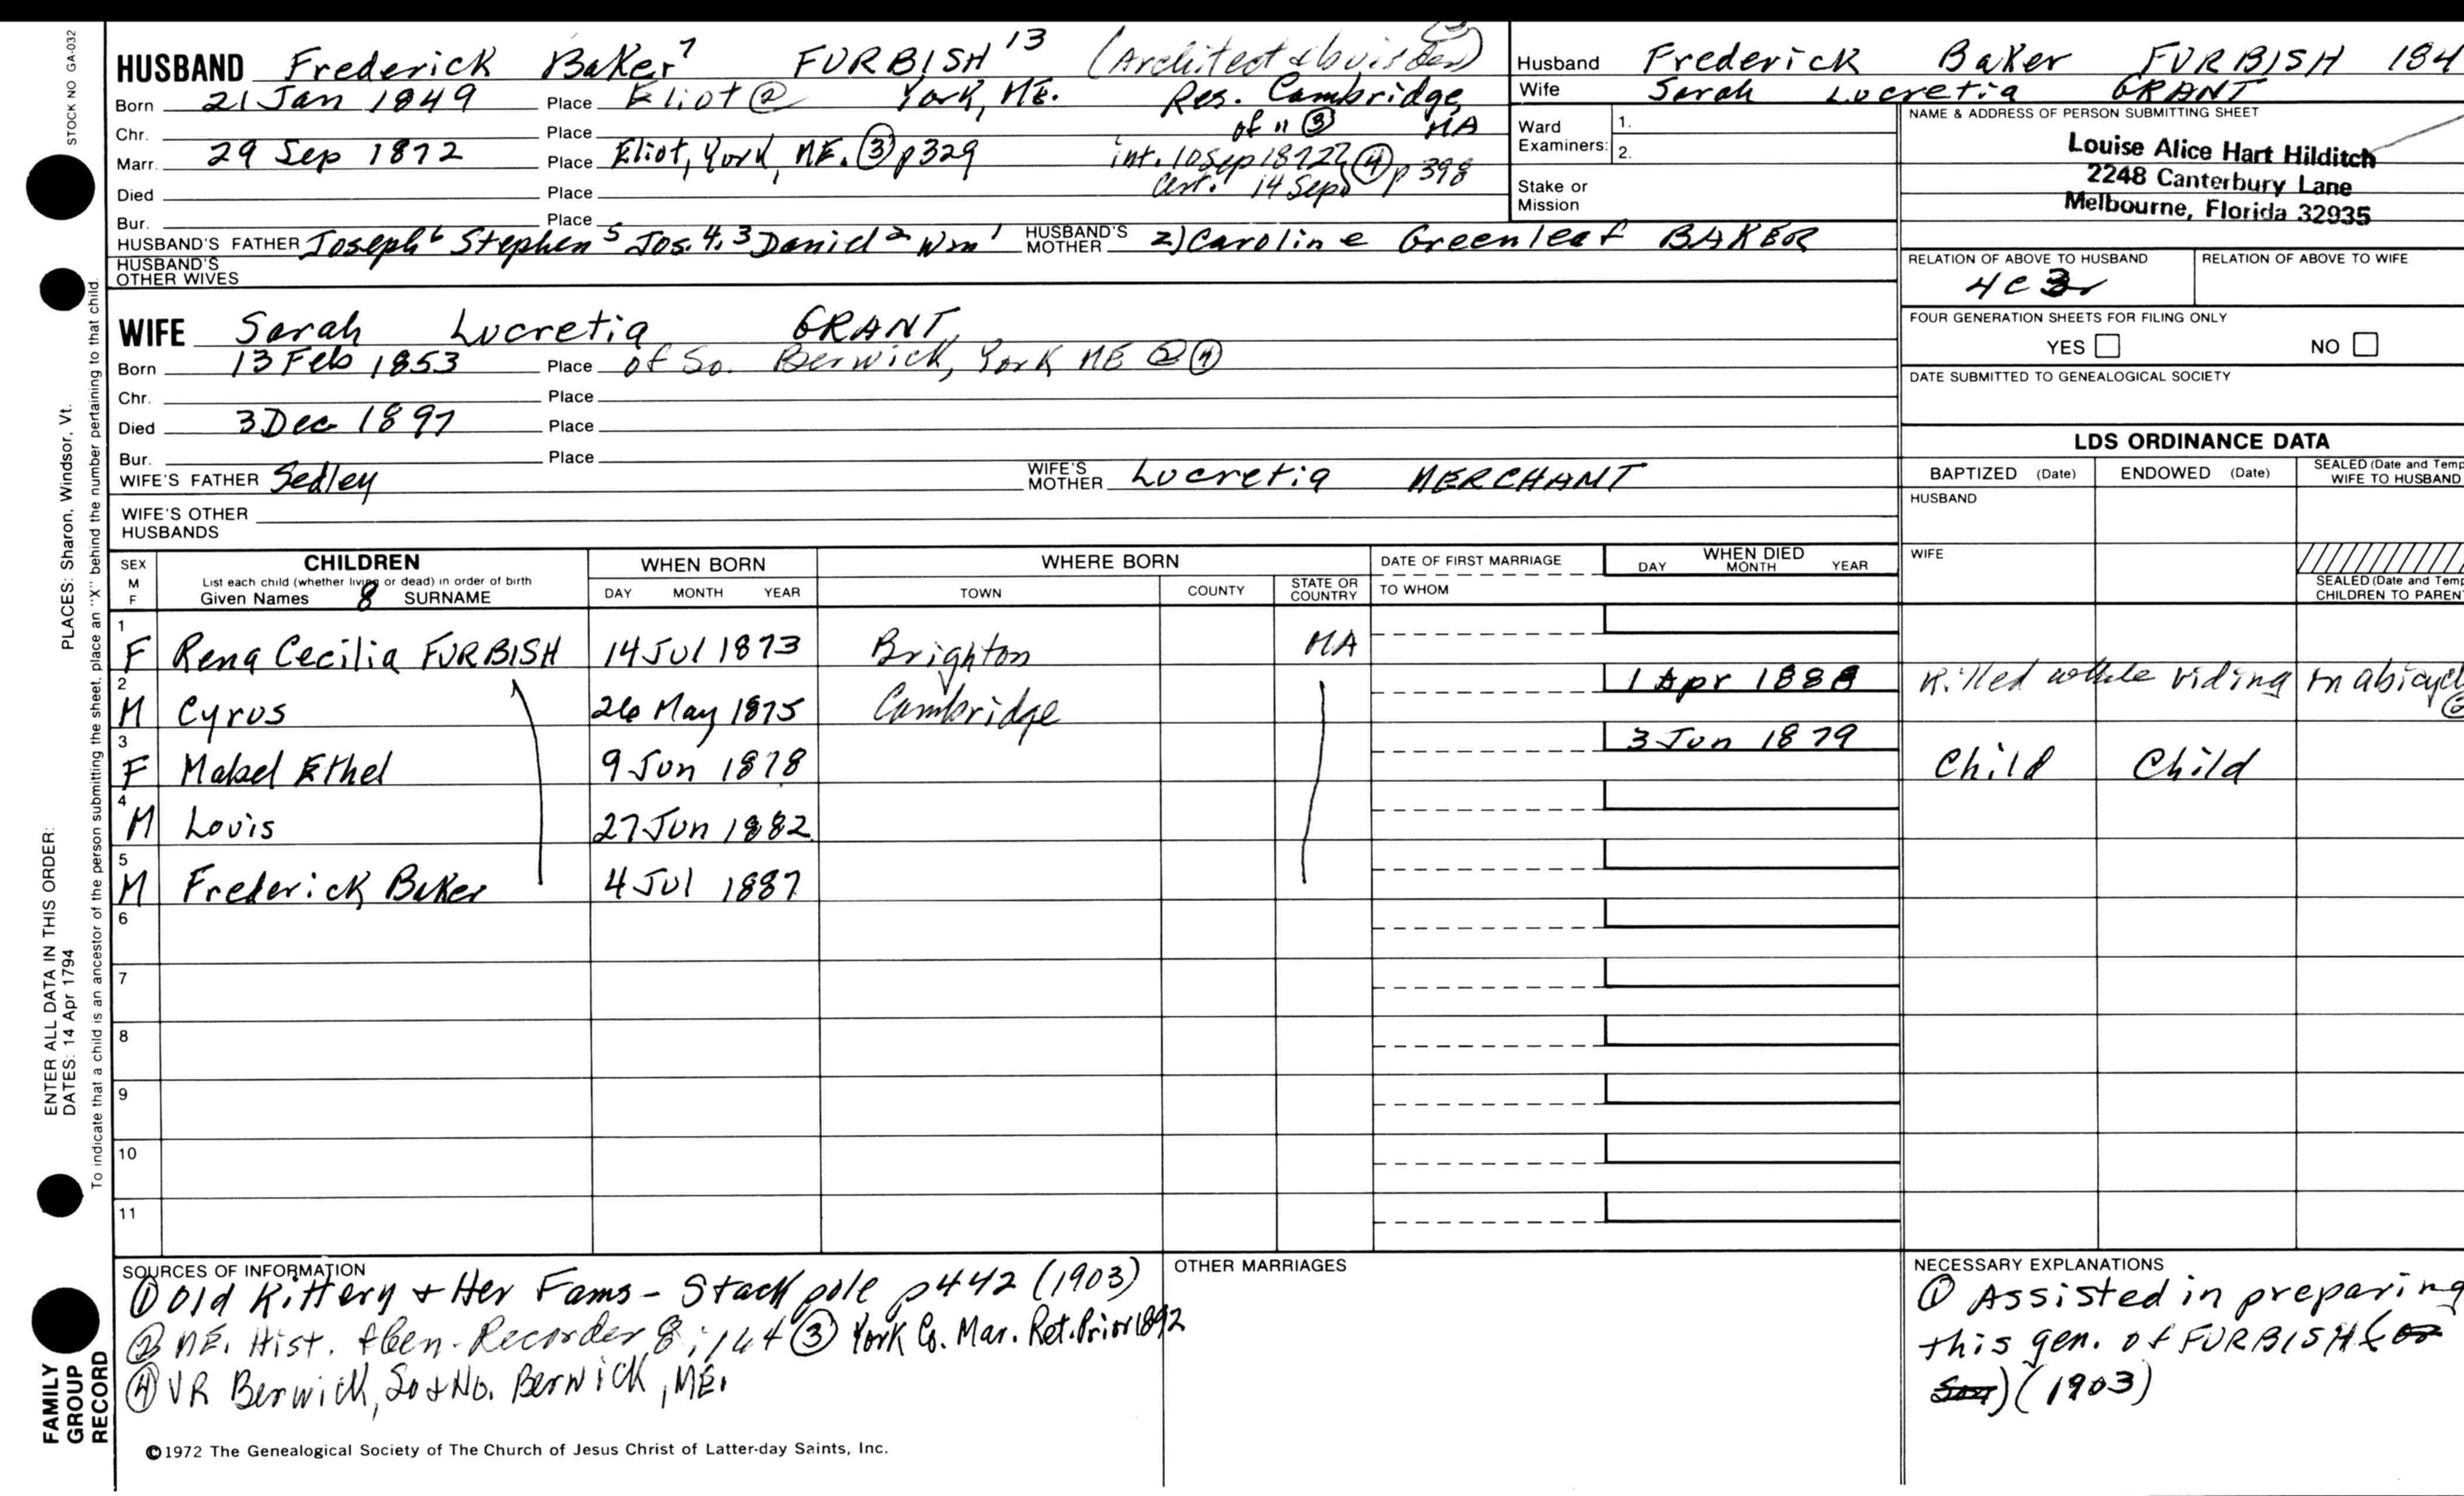 STOCK NO GA-032
HUSBAND Frederick Baker 7 FURBISH 13 (Architect & builder)
Born 21 Jan 1849 Place Eliot ② York, ME. Res. Cambridge, MA
Chr. Place of " ③
Marr. 29 Sep 1872 Place Eliot, York, ME. ③ p329 int. 10 Sep 1872 ④ p 398
Died Place Cert. 14 Sep
Bur. Place
HUSBAND'S FATHER Joseph 6 Stephen 5 Jos. 4, 3 Daniel 2 Wm 1 HUSBAND'S MOTHER 2) Caroline Greenleaf BAKER
HUSBAND'S OTHER WIVES
WIFE Sarah Lucretia GRANT
Born 13 Feb 1853 Place of So. Berwick, York ME ② ④
Chr. Place
Died 3 Dec 1897 Place
Bur. Place
WIFE'S FATHER Sedley WIFE'S MOTHER Lucretia MERCHANT
WIFE'S OTHER HUSBANDS
Husband Frederick Baker FURBISH 184
Wife Sarah Lucretia GRANT
Ward Examiners: 1.
2.
Stake or Mission
NAME & ADDRESS OF PERSON SUBMITTING SHEET
Louise Alice Hart Hilditch
2248 Canterbury Lane
Melbourne, Florida 32935
RELATION OF ABOVE TO HUSBAND RELATION OF ABOVE TO WIFE
4C3r
FOUR GENERATION SHEETS FOR FILING ONLY
YES NO
DATE SUBMITTED TO GENEALOGICAL SOCIETY
LDS ORDINANCE DATA
BAPTIZED (Date) ENDOWED (Date) SEALED (Date and Temp
WIFE TO HUSBAND
HUSBAND
WIFE
SEALED (Date and Temp
CHILDREN TO PAREN
SEX M F CHILDREN WHEN BORN WHERE BORN DATE OF FIRST MARRIAGE WHEN DIED
List each child (whether living or dead) in order of birth
Given Names 8 SURNAME DAY MONTH YEAR TOWN COUNTY STATE OR COUNTRY TO WHOM DAY MONTH YEAR
1 F Rena Cecilia FURBISH 14 Jul 1873 Brighton MA
2 M Cyrus 26 May 1875 Cambridge 1 Apr 1888 Killed while riding on a bicycl
3 F Mabel Ethel 9 Jun 1878 3 Jun 1879 Child Child
4 M Louis 27 Jun 1882
5 M Frederick Baker 4 Jul 1887
6
7
8
9
10
11
SOURCES OF INFORMATION
① Old Kittery + Her Fams - Stackpole p442 (1903)
② ME. Hist. & Gen. Recorder 8:164 ③ York Co. Mar. Ret. Prior 1892
④ VR Berwick, So & No. Berwick, ME.
OTHER MARRIAGES
NECESSARY EXPLANATIONS
① Assisted in preparing
this gen. of FURBISH
(1903)
©1972 The Genealogical Society of The Church of Jesus Christ of Latter-day Saints, Inc.
PLACES: Sharon, Windsor, Vt.
To indicate that a child is an ancestor of the person submitting the sheet, place an "X" behind the number pertaining to that child.
ENTER ALL DATA IN THIS ORDER:
DATES: 14 Apr 1794
FAMILY
GROUP
RECORD